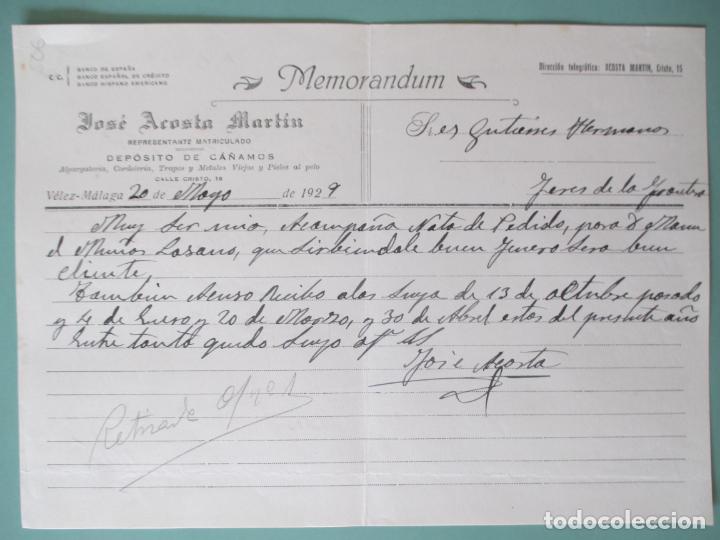 C. C.
BANCO DE ESPAÑA
BANCO ESPAÑOL DE CRÉDITO
BANCO HISPANO AMERICANO
Memorandum
Dirección telegráfica: ACOSTA MARTIN, Cristo, 15
José Acosta Martín
REPRESENTANTE MATRICULADO
DEPÓSITO DE CÁÑAMOS
Alpargatería, Cordelería, Trapos y Metales Viejos y Pieles al pelo
CALLE CRISTO, 15
Vélez-Málaga 20 de Mayo de 1929
Sres Gutierres Hermanos
Jeres de la Frontra
Muy Ser mio, Acompaña Nota de Pedido, para D Manu
el Muños Losano, que Sirbiendale buen Jenero Sera buen
Cliente,
Tambien Acuso Recibo alas Suya de 13 de octubre pasado
y 4 de Enero y 20 de Marzo, y 30 de Abrel estas del presente año
Entre tanto quedo Suyo affmo SS
Jose Acosta
todocoleccion
todocoleccion.net